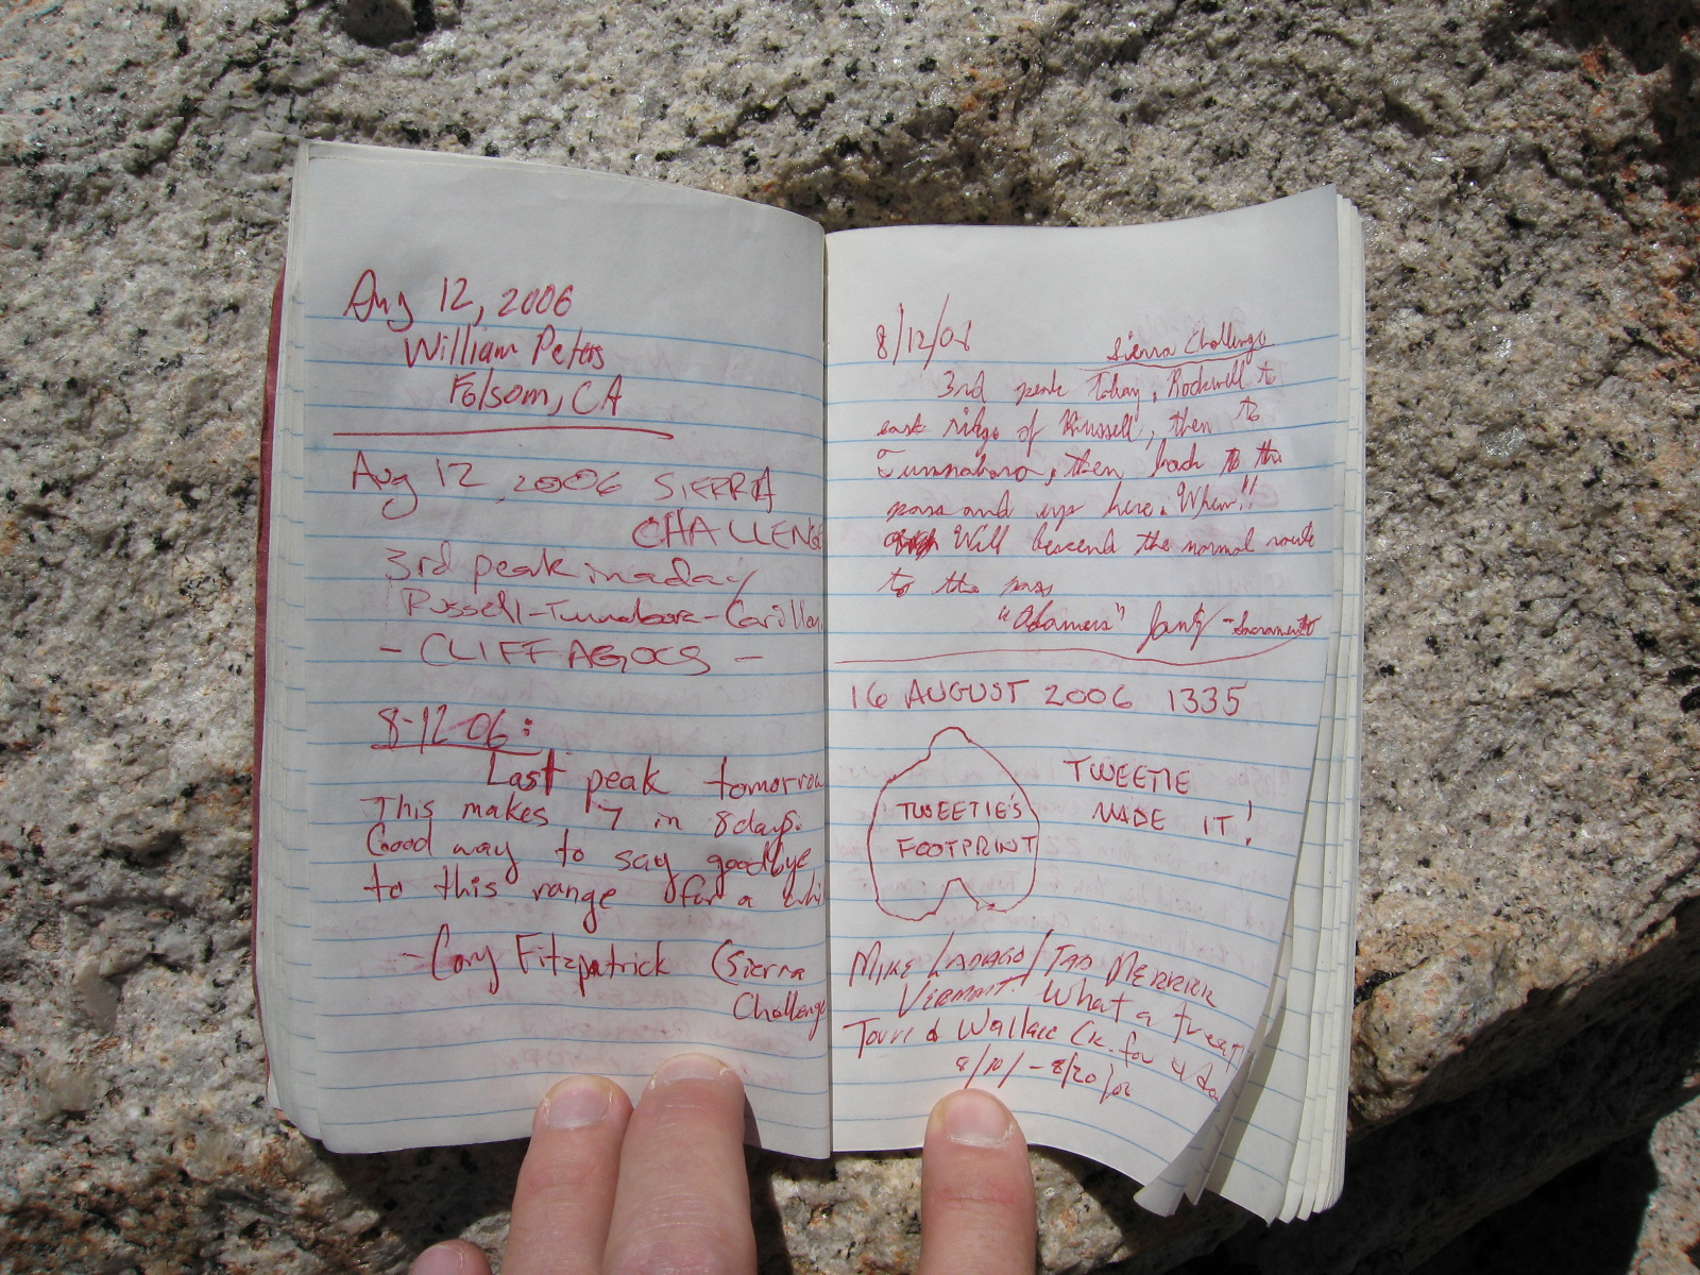 Aug 12, 2006
William Peters
Folsom, CA
Aug 12, 2006 SIERRA
CHALLENGE
3rd peak in a day
Russell-Tunnabora-Carillon
- CLIFF AGOCS -
8-12-06:
Last peak tomorrow
This makes 7 in 8 days.
Good way to say goodbye
to this range for a whi
- Cory Fitzpatrick (Sierra
Challenge
8/12/06 Sierra Challenge
3rd peak today, Rockwell to
east ridge of Russell, then to
Tunnabora, then back to the
pass and up here. Whew!!
Will descend the normal route
to the pass
- Sacramento
16 AUGUST 2006 1335
TWEETIE'S
FOOTPRINT
TWEETIE
MADE IT!
MIKE / TAD MERRICK
VERMONT. What a treat
Wallace Ck. for 4 da
8/10/-8/20/06